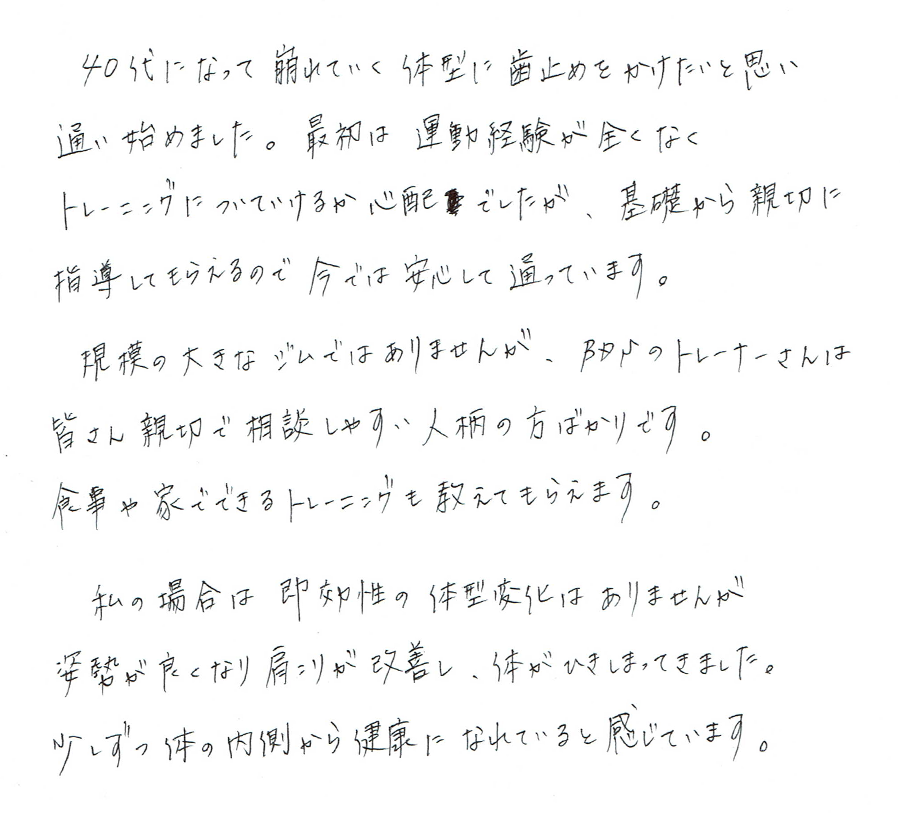 40代になって崩れていく体型に歯止めをかけたいと思い
通い始めました。最初は運動経験が全くなく
トレーニングについていけるか心配でしたが、基礎から親切に
指導してもらえるので今では安心して通っています。
規模の大きなジムではありませんが、のトレーナーさんは
皆さん親切で相談しやすい人柄の方ばかりです。
食事や家でできるトレーニングも教えてもらえます。
私の場合は即効性の体型変化はありませんが
姿勢が良くなり肩こりが改善し、体がひきしまってきました。
少しずつ体の内側から健康になれていると感じています。